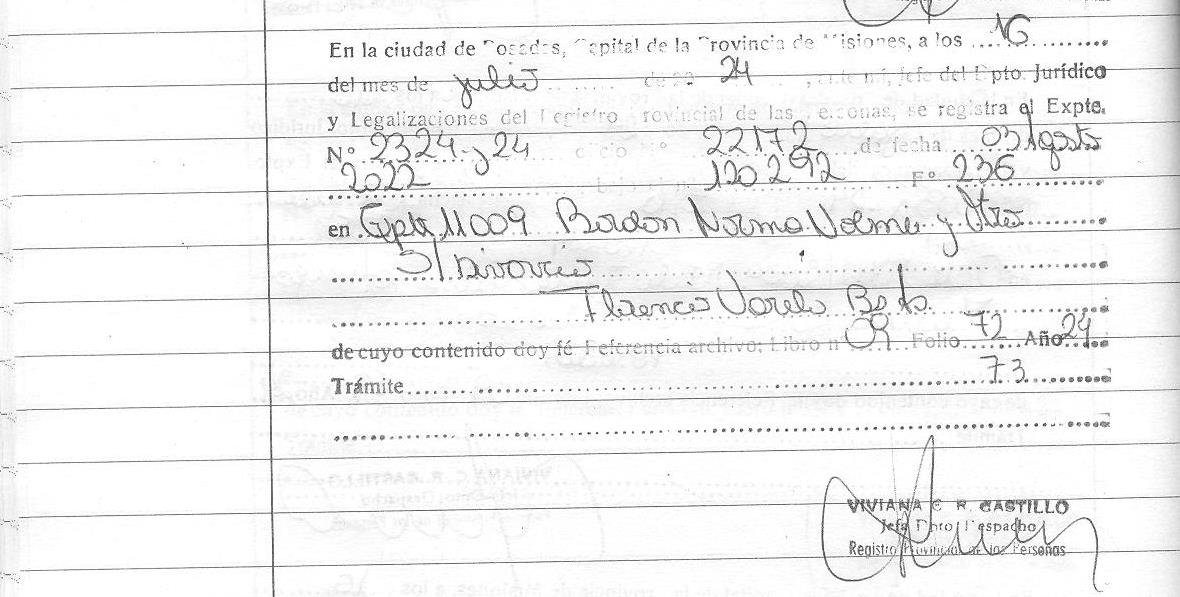 En la ciudad de Posadas, Capital de la Provincia de Misiones, a los 16
del mes de julio de 20 24, ante mí, Jefe del Dpto. Jurídico
y Legalizaciones del Registro Provincial de las Personas, se registra el Expte.
N° 2324-y24 oficio N° 22172 de fecha 03 Agosto
2022 120292 F° 236
en Expte 11009 Bordon Norma y Otro
S/ Divorcio
Florencio Varela Bs As.
de cuyo contenido doy fé Referencia archivo: Libro n 09 Folio 72 Año 24
Trámite 73
VIVIANA C R CASTILLO
Jefa Dpto Despacho
Registro Provincial de las Personas